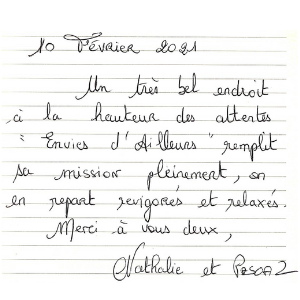 10 Février 2021
Un très bel endroit
à la hauteur des attentes
"Envies d'Ailleurs" remplit
sa mission pleinement, on
en repart revigorés et relaxés.
Merci à vous deux,
Nathalie et